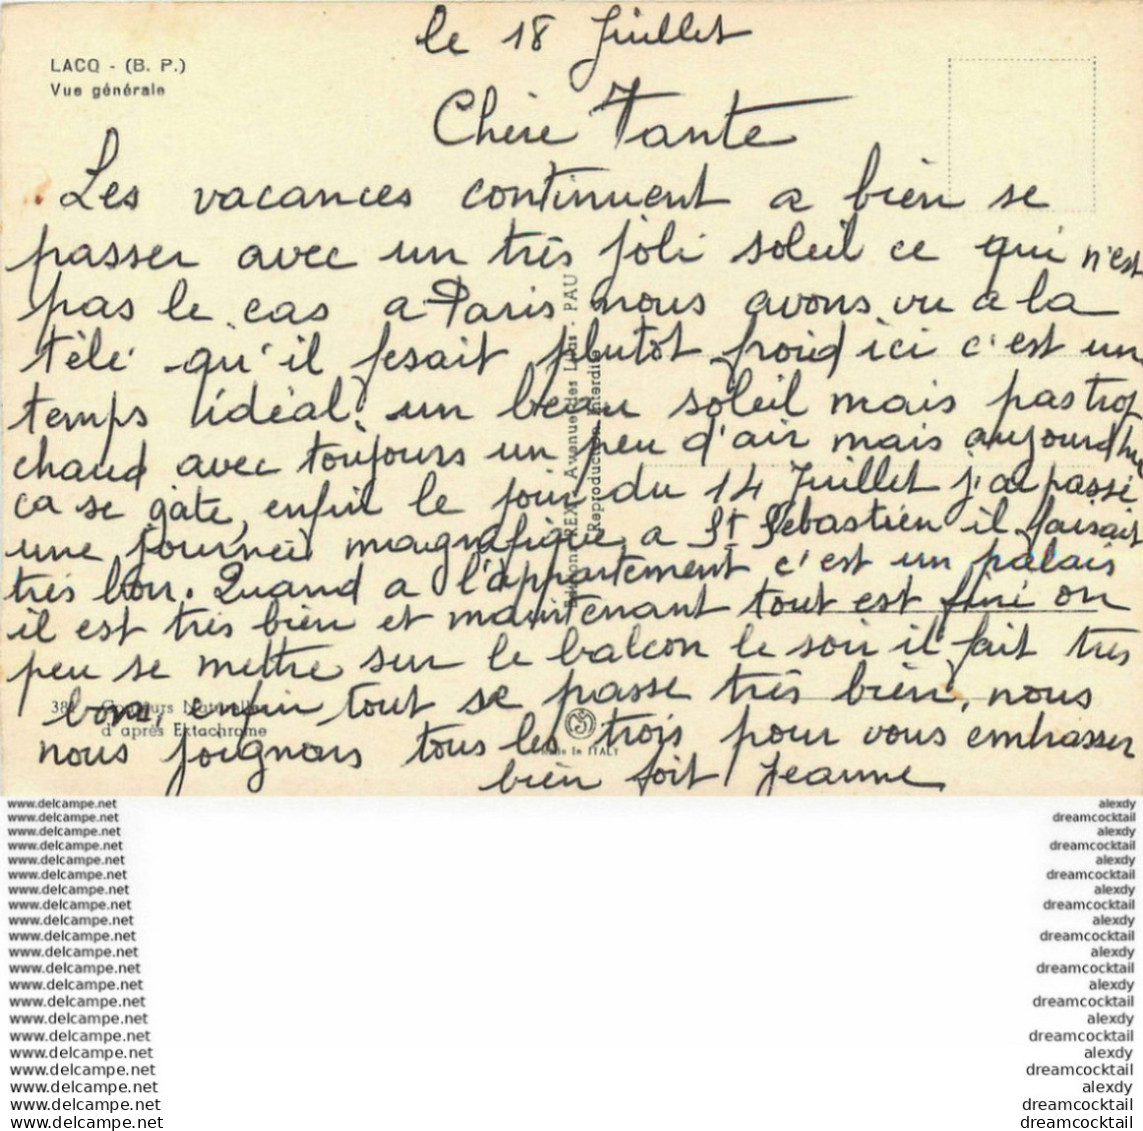 le 18 Juillet
LACQ - (B. P.)
Vue générale
Chère Tante
Les vacances continuent a bien se
passer avec un très joli soleil ce qui n'est
pas le cas a Paris nous avons vu a la
télé qu'il fesait plutot froid ici c'est un
temps idéal un beau soleil mais pas trop
chaud avec toujours un peu d'air mais aujourd'hui
ca se gate, enfin le jour du 14 Juillet j'ai passé
une journeé magnifique a St Sebastien il faisait
très bon. Quand a l'appartement c'est un palais
il est très bien et maintenant tout est fini on
peu se mettre sur le balcon le soir il fait très
bon, enfin tout se passe très bien, nous
nous joignons tous les trois pour vous embrasser
bien fort Jeanne
Avenue des Lilas - PAU
Reproduction Interdite
38 Couleurs Naturelles
d'après Ektachrome
Made in ITALY
www.delcampe.net alexdy
www.delcampe.net dreamcocktail
www.delcampe.net alexdy
www.delcampe.net dreamcocktail
www.delcampe.net alexdy
www.delcampe.net dreamcocktail
www.delcampe.net alexdy
www.delcampe.net dreamcocktail
www.delcampe.net alexdy
www.delcampe.net dreamcocktail
www.delcampe.net alexdy
www.delcampe.net dreamcocktail
www.delcampe.net alexdy
www.delcampe.net dreamcocktail
www.delcampe.net alexdy
www.delcampe.net dreamcocktail
www.delcampe.net alexdy
www.delcampe.net dreamcocktail
www.delcampe.net alexdy
www.delcampe.net dreamcocktail
www.delcampe.net dreamcocktail